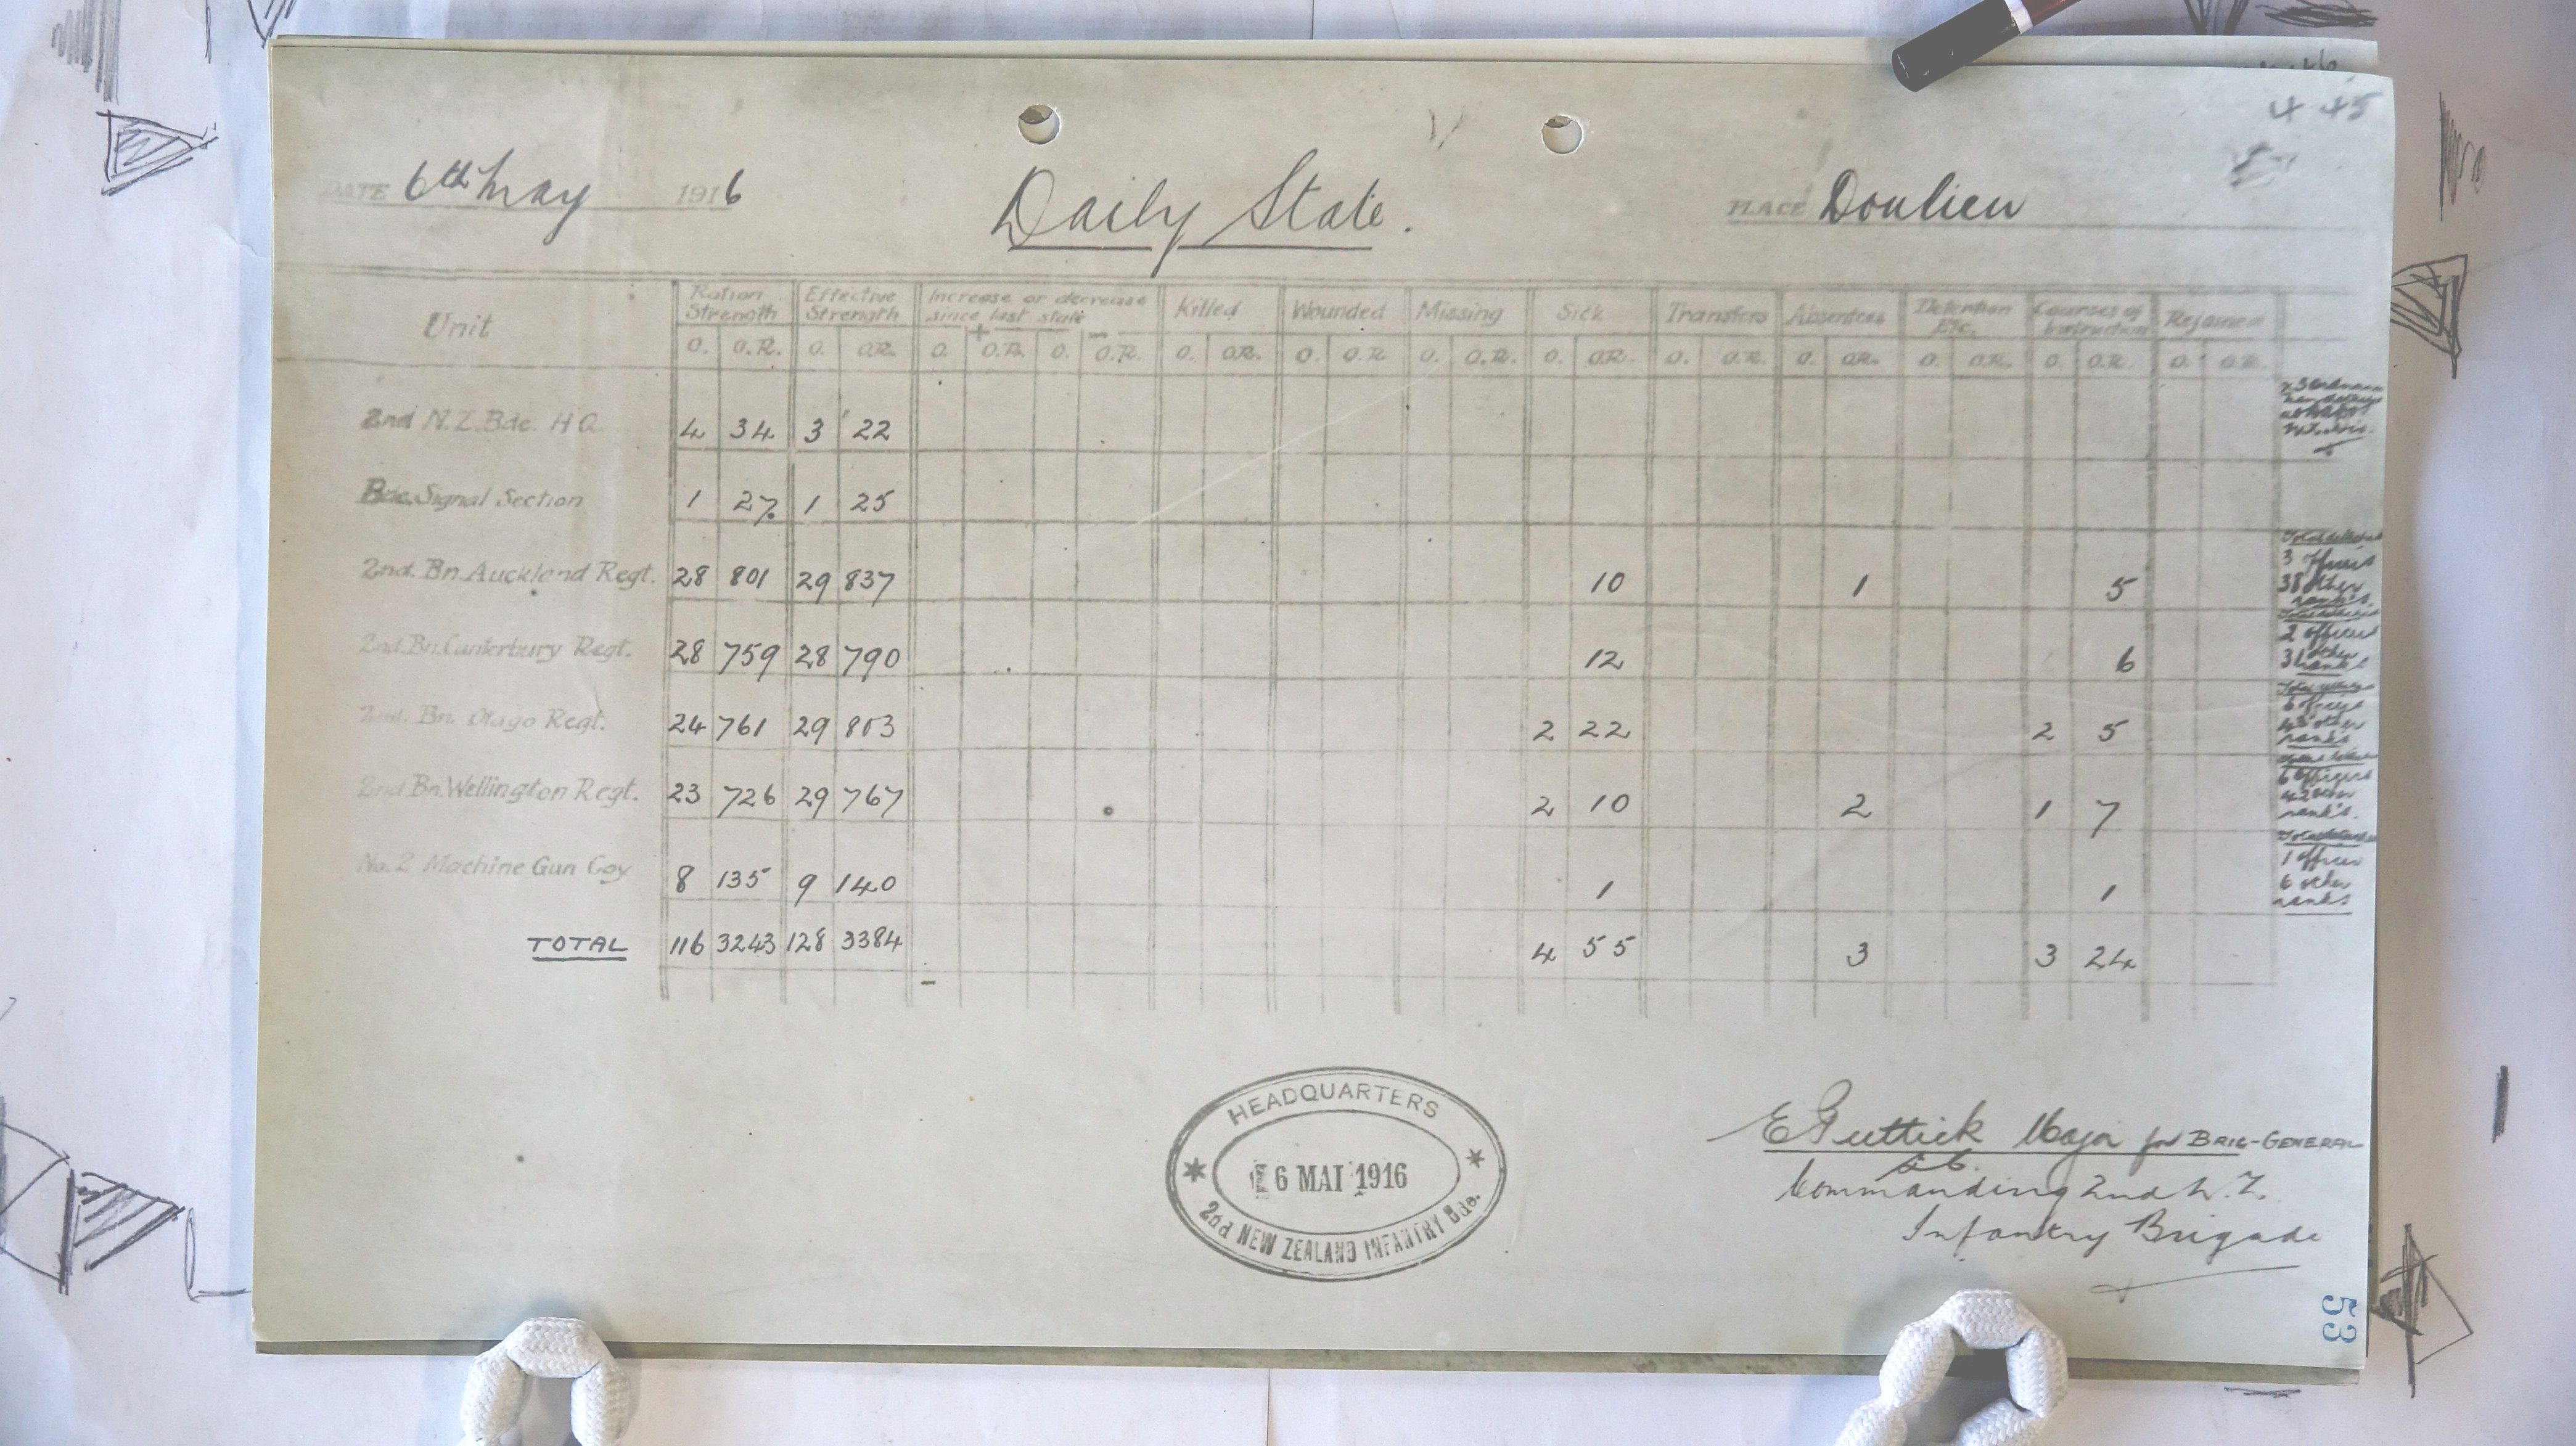 4 45
DATE 6th May 1916
Daily State.
PLACE Doulieu
Unit
Ration Strength
Effective Strength
Increase or decrease since last state
+ -
Killed
Wounded
Missing
Sick
Transfers
Absentees
Detention Etc.
Courses of Instruction
Rejoined
O. O.R. O. O.R. O. O.R. O. O.R. O. O.R. O. O.R. O. O.R. O. O.R. O. O.R. O. O.R. O. O.R. O. O.R. O. O.R.
2nd N.Z. Bde. HQ. 4 34 3 22
Bde. Signal Section 1 27. 1 25
2nd. Bn. Auckland Regt. 28 801 29 837 10 1 5
3 officers
38 other
ranks.
2nd. Bn. Canterbury Regt. 28 759 28 790 12 6
2 officers
31 other
ranks
2nd. Bn. Otago Regt. 24 761 29 803 2 22 2 5
6 officers
other
ranks
2nd Bn. Wellington Regt. 23 726 29 767 2 10 2 1 7
6 officers
42 other
ranks.
No. 2 Machine Gun Coy 8 135 9 140 1 1
1 officer
6 other
ranks
TOTAL 116 3243 128 3384 4 55 3 3 24
HEADQUARTERS
6 MAI 1916
2nd NEW ZEALAND INFANTRY Bde.
E Puttick Major for BRIG-GENERAL
Commanding 2nd N.Z.
Infantry Brigade
53